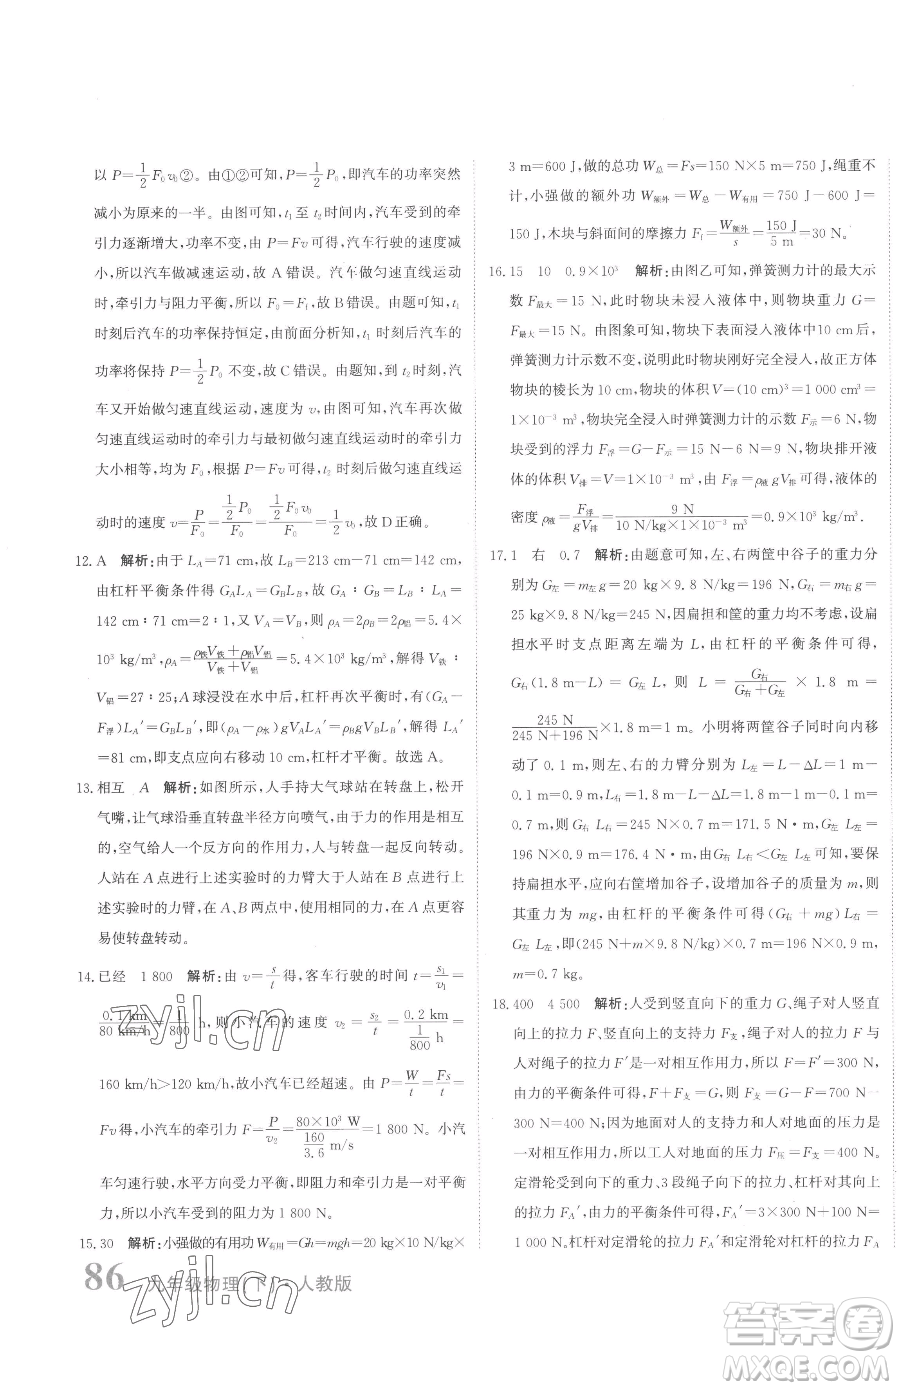 以 P=1/2 F₀v₀②。由①②可知 P=1/2 P₀,即汽车的功率突然
减小为原来的一半。由图可知,t₁ 至 t₂ 时间内,汽车受到的牵
引力逐渐增大,功率不变,由 P=Fv 可知,汽车行驶的速度减
小,所以汽车做减速运动,故 A 错误。汽车做匀速直线运动
时,牵引力与阻力平衡,所以 F₀=f,故 B 错误。由图可知,t₁
时刻后汽车的功率保持恒定,由前面分析可知,t₁ 时刻后汽车的
功率将保持 P=1/2 P₀ 不变,故 C 错误。到 t₂ 时刻时,汽
车又开始做匀速直线运动,速度为 v,由图可知,汽车再次做
匀速直线运动时的牵引力与最初做匀速直线运动时的牵引力
大小相等,均为 F₀,根据 P=Fv 可知,t₂ 时刻做匀速直线运
动时的速度 v=P/F₀=(1/2 P₀)/F₀=(1/2 F₀v₀)/F₀=1/2 v₀,故 D 正确。
12. A 解析:由于 L_A=71 cm,故 L_B=213 cm-71 cm=142 cm,
由杠杆平衡条件得 G_A L_A=G_B L_B,则 L_B∶L_A=
142 cm∶71 cm=2∶1,又 V_A=V_B,所以 ρ_A=2ρ_B=5.4×
10³ kg/m³,ρ_A=(ρ铁V铁+ρ铝V铝)/(V铁+V铝)=5.4×10³ kg/m³,解得 V铁∶
V铝=27∶25;A 球浸没在水中后,杠杆再次平衡时,有(G_A-
F浮)L_A′=G_B L_B′,即(ρ_A-ρ水)gV_A L_A′=ρ_B gV_B L_B′,解得 L_A′
=81 cm,即支点应向右移动 10 cm,杠杆才平衡。故选 A。
13. 相互 A 解析:如图所示,人手持大气球站在转盘上,松开
气嘴,让气球沿垂直转盘半径方向喷气,由于力的作用是相互
的,空气给人一个反方向的作用力,人与转盘一起反向转动。
人站在 A 点进行上述实验时的力臂大于人站在 B 点进行上
述实验时的力臂,在 A、B 两点中,使用相同的力,在 A 点更容
易使转盘转动。
14. 已经 1 800 解析:由 v=s/t 得,客车行驶的时间 t=s₁/v₁=
0.1 km/80 km/h=1/800 h,则小汽车的速度 v₂=s₂/t=0.2 km/(1/800 h)=
160 km/h>120 km/h,故小汽车已经超速。由 P=W/t=Fs/t=
Fv 得,小汽车的牵引力 F=P/v₂=80×10³ W/(160/3.6 m/s)=1 800 N。小汽
车匀速行驶,水平方向受力平衡,即阻力和牵引力是平衡力,
所以小汽车受到的阻力为 1 800 N。
15. 30 解析:小强做的有用功 W有用=Gh=mgh=20 kg×10 N/kg×
86 九年级物理(下)·人教版
3 m=600 J,做的总功 W总=Fs=150 N×5 m=750 J,绳重不
计,小强做的额外功 W额外=W总-W有用=750 J-600 J=
150 J,木块与斜面间的摩擦力 F_f=W额外/s=150 J/5 m=30 N。
16. 15 10 0.9×10³ 解析:由图乙可知,弹簧测力计的最大示
数 F最大=15 N,此时物块未浸入液体中,则物块重力 G=
F最大=15 N。由图象可知,物块下表面下降 10 cm 后,
弹簧测力计示数不变,说明此时物块刚好完全浸入,故正方体
物块的棱长为 10 cm,物块的体积 V=(10 cm)³=1 000 cm³=
1×10⁻³ m³,物块完全浸入时弹簧测力计的示数 F示=6 N,
物块受到的浮力 F浮=G-F示=15 N-6 N=9 N;物块排开液
体的体积 V排=V=1×10⁻³ m³,由 F浮=ρ液gV排 可得,液体的
密度 ρ液=F浮/gV排=9 N/(10 N/kg×1×10⁻³ m³)=0.9×10³ kg/m³.
17. 1 右 0.7 解析:由题意可知,左、右两筐中谷子的重力分
别为 G左=m左g=20 kg×9.8 N/kg=196 N,G右=m右g=
25 kg×9.8 N/kg=245 N,因扁担和筐的重力均不考虑,设扁
担水平时支点距离左端为 L,由杠杆的平衡条件可得,
G右(1.8 m-L)=G左 L,则 L=G右/(G右+G左)×1.8 m=
245 N/(245 N+196 N)×1.8 m=1 m。小明将两筐谷子同时向内移
动了 0.1 m,则两边的力臂分别为 L左=L-ΔL=1 m-
0.1 m=0.9 m,L右=1.8 m-L-ΔL=1.8 m-1 m-0.1 m=
0.7 m,由 G右 L右=245 N×0.7 m=171.5 N·m,G左 L左=
196 N×0.9 m=176.4 N·m,G右 L右<G左 L左 可知,要保持
扁担水平,应向右筐增加谷子,设增加谷子的质量为 m,则
G=mg,由杠杆的平衡条件可得(G右+mg)L右=
G左 L左,即(245 N+m×9.8 N/kg)×0.7 m=196 N×0.9 m,
m=0.7 kg。
18. 400 4 500 解析:人受到竖直向下的重力 G、绳子对人竖直
向上的拉力 F、竖直向上的支持力 F支,绳子对人的拉力 F 与
人对绳子的拉力 F′是一对相互作用力,所以 F=F′=300 N,
由力的平衡条件可得,F+F支=G,则 F支=G-F=700 N-
300 N=400 N;因为地面对人的支持力和人对地面的压力是
一对相互作用力,所以工人对地面的压力 F压=F支=400 N。
定滑轮受到向下的重力、3 段绳子的拉力、杠杆对定滑轮向上
的拉力 F_A′,由力的平衡条件可得,F_A′=3×300 N+100 N=
1 000 N。杠杆对定滑轮的拉力 F_A′和定滑轮对杠杆的拉力 F_A
zyjl.cn
zyjl.cn
答案圈
MXQE.COM